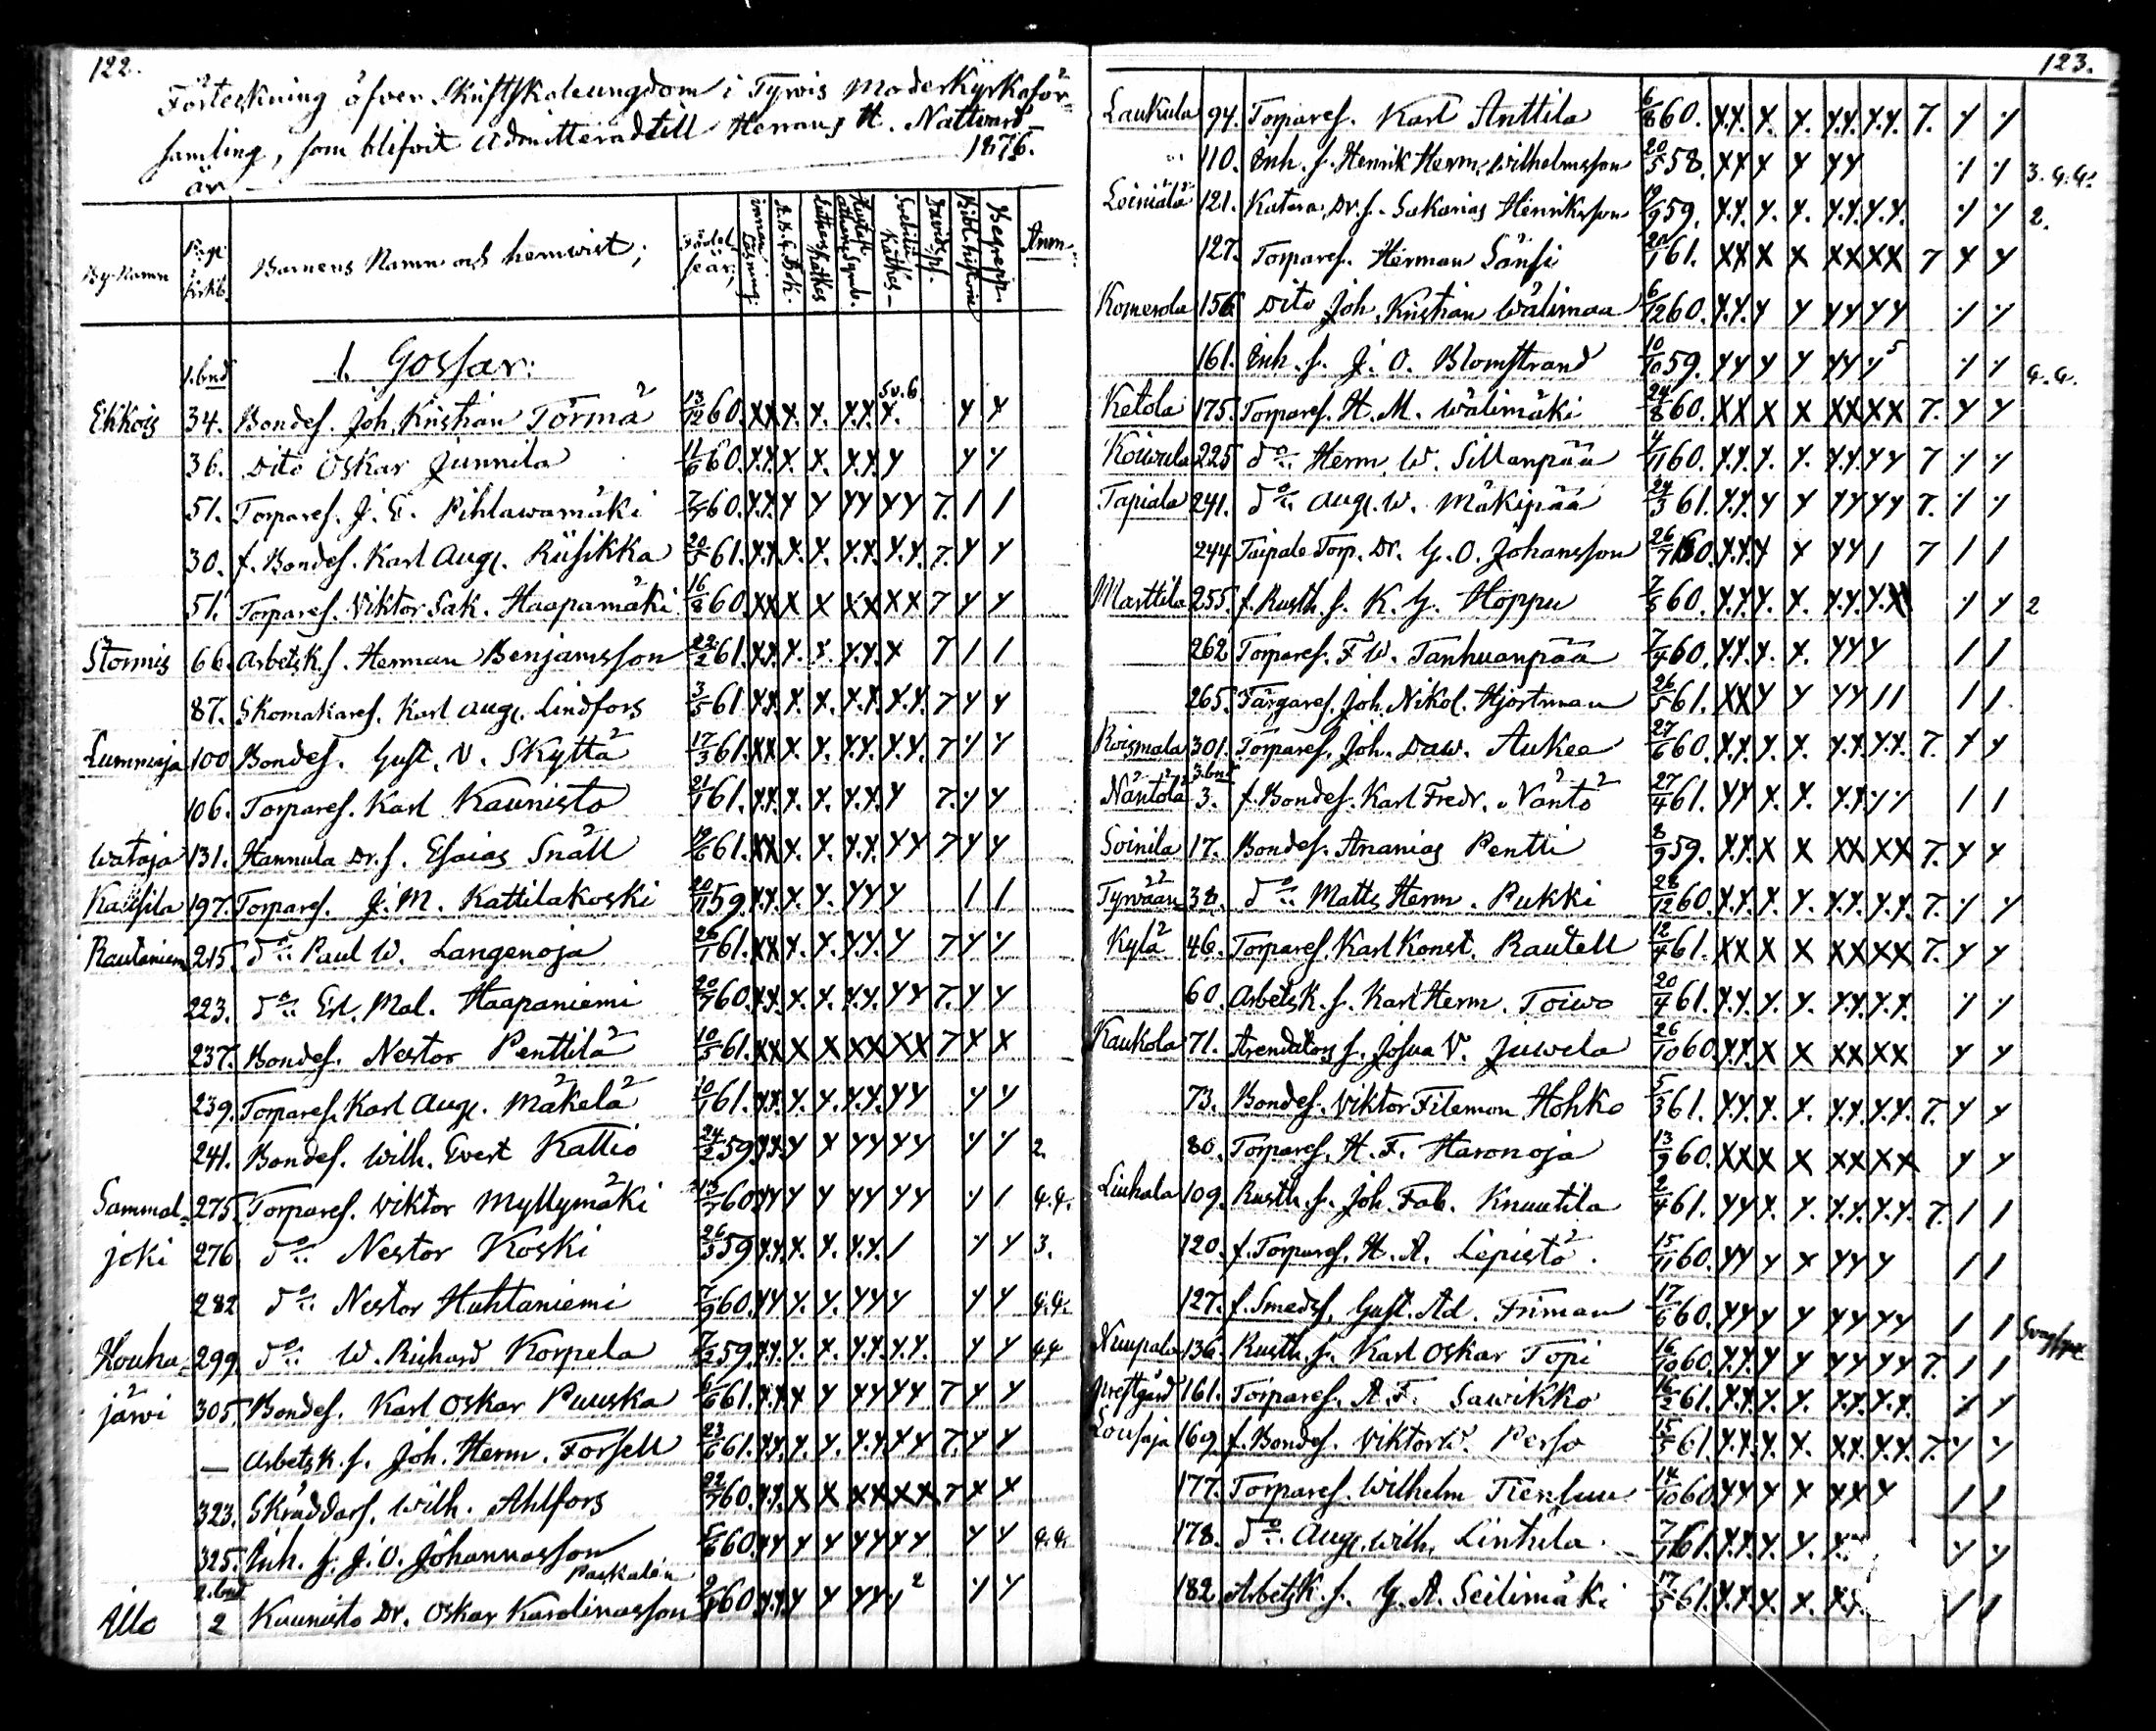 122.
Förteckning öfver Skriftskoleungdom i Tyrvis Moderkyrkoför-
samling, som blifvit admitterad till Herrans H. Nattvard
år 1876.
By-Namn Pag. i Barnens Namn och hemvist; Födel- innan läsning. A.B.C. Bok. Luthers Kathes. Hustafl. athan. Symb. Svebilii Kathes- Davids ps. Bibl. historie Begrepp. Anm.
1. bnd 1. Gossar:
Ekkois 34. Bondes. Joh. Kristian Törmä 13/12 60. x x x. x. x.x. x. 5 v. 6. x x
36. Dito Oskar Junnila 11/6 60. x.x. x. x. x.x. x x x
51. Torpares. J. E. Pihlawamäki 7/7 60. x.x. x x xx xx 7. / /
30. f. Bondes. Karl Aug. Riisikka 20/5 61. x.x. x. x. x.x. x.x. 7. x x
51. Torpares. Viktor Sak. Haapamäki 16/8 60. xx x x xx xx 7 x x
Stormis 66. Arbetsk. s. Herman Benjamsson 22/2 61. x.x. x. x. x.x. x 7 / /
87. Skomakares. Karl Aug. Lindfors 3/5 61. x.x. x. x. x.x. x.x. 7 x x
Lummaja 100 Bondes. Gust. V. Skyttä 17/3 61. xx x. x. x.x. x.x. 7 x x
106. Torpares. Karl Kaunisto 21/1 61. x.x. x. x. x.x. x 7. x x
Wataja 131. Hannula Dr. s. Esaias Snäll 19/6 61. xx x. x. x.x. xx 7 x x
Kaüsila 197. Torpares. J. M. Kattilakoski 20/11 59. x.x. x. x. xx x / /
Rautaniem 215. d:o Paul W. Langenoja 26/1 61. xx x. x. x.x. x 7 x x
223. d:o Er. Mal. Haapaniemi 20/7 60. x.x. x. x. x.x. xx 7. x x
237. Bondes. Nestor Penttilä 10/5 61. xx x x xx xx 7 x x
239. Torpares. Karl Aug. Mäkelä 10/1 61. x.x. x. x. x.x. xx x x
241. Bondes. Wilh. Evert Kallio 24/2 59. x.x. x x xx xx x x 2.
Sammal- 275. Torpares. Viktor Myllymäki 60. xx x x xx xx x / G.G.
joki 276 d:o Nestor Koski 26/3 59 x.x. x. x. x.x. / x x 3.
282 d:o Nestor Huhtaniemi 7/9 60. xx x. x. xx x x x G.G.
Houha- 299. d:o W. Richard Korpela 7/2 59. x.x. x. x. x.x. x.x. x x GG
järvi 305. Bondes. Karl Oskar Puuska 6/6 61. x.x. x x xx xx 7 x x
— Arbetsk. s. Joh. Herm. Forsell 23/6 61. x.x. x. x. x.x. xx 7. x x
323. Skräddars. Wilh. Ahlfors 22/7 60. x.x. x x xx xx 7 x x
325. Inh. s. J. O. Johannasson 5/6 60. xx x x xx xx x x G.G.
2. bnd Paskalen
Illo 2 Kaunisto Dr. Oskar Karolinasson 60. x.x. x x xx / 2 x x
123.
Laukula 94. Torpares. Karl Anttila 6/8 60. x.x. x. x. x.x. x.x. 7. x x
" 110. Inh. s. Henrik Herm. Wilhelmsson 20/5 58. xx x x xx x x 3. G.G.
Loiniala 121. Katara Dr. s. Sakarias Henriksson 19/9 59. x.x. x. x. x.x. x.x. x x 2.
127. Torpares. Herman Länsi 20/1 61. xx x x xx xx 7 x x
Komerola 156 Dito Joh. Kristian Wälimaa 6/12 60. x.x. x x xx xx x x
161. Inh. s. J. O. Blomstrand 10/10 59. xx x x xx x 5 x x G.G.
Ketola 175. Torpares. H. M. Wälimäki 24/8 60. xx x x xx xx 7. x x
Koiwula 225 d:o Herm. W. Sillanpää 4/11 60. x.x. x. x. x.x. xx 7 x x
Tapiala 241. d:o Aug. W. Mäkipää 24/3 61. x.x. x x xx xx 7. x x
244 Taipale Torp. Dr. G. O. Johansson 26/7 60. x.x. x x xx / 7 / /
Marttila 255. f. Rusth. s. K. G. Hoppu 7/5 60. x.x. x. x. x.x. x.x x x 2
262 Torpares. F. W. Tanhuanpää 7/4 60. x.x. x. x. xx x / /
265. Färgares. Joh. Nikol. Hjortman 26/5 61. xx x x xx // / /
Roismala 301. Torpares. Joh. Daw. Aukea 27/6 60. x.x. x. x. x.x. x.x. 7. x x
3. bnd
Näntölä 3. f. Bondes. Karl Fredr. Näntö 27/4 61. xx x. x. x.x. xx / /
Soinila 17. Bondes. Ananias Pentti 8/9 59. x.x. x x xx xx 7. x x
Tyrvään 38. d:o Matts Herm. Pukki 28/12 60. x.x. x. x. x.x. x.x. 7. x x
Kylä 46. Torpares. Karl Konst. Rautell 12/4 61. xx x x xx xx 7. x x
60. Arbetsk. s. Karl Herm. Toiwo 20/4 61. x.x. x. x. x.x. x.x. x x
Kaukola 71. Arendators s. Josua V. Juwela 26/10 60. x.x. x x xx xx x x
73. Bondes. Viktor Filemon Hohko 5/3 61. x.x. x. x. x.x. x.x. 7. x x
80. Torpares. H. F. Haronoja 13/9 60. xx x x xx xx x x
Liuhala 109. Rusth. s. Joh. Fab. Knuutila 2/4 61. xx x. x. x.x. x.x. 7. / /
120. f. Torpares. H. A. Lepistö. 15/11 60. xx x x xx x / /
127. f. Smeds s. Gust. Ad. Friman 17/6 60. xx x x xx xx / /
Nuupala 136. Rusth. s. Karl Oskar Topi 16/10 60. x.x. x x xx xx 7. / /
Prestgård 161. Torpares. A. F. Sawikko 16/2 61. x.x. x. x. x.x. x.x. x x
Lousaja 169. f. Bondes. Viktor W. Perso 15/5 61. x.x. x. x. xx. x.x. 7. x x
177. Torpares. Wilhelm Tiensuu 14/10 60. xx x x xx x / /
178. d:o Aug. Wilh. Lintula 7/1 61. x.x. x. x. x. x x
182 Arbetsk. s. G. A. Seilimäki 17/5 61. x.x. x. x. x.x. / /